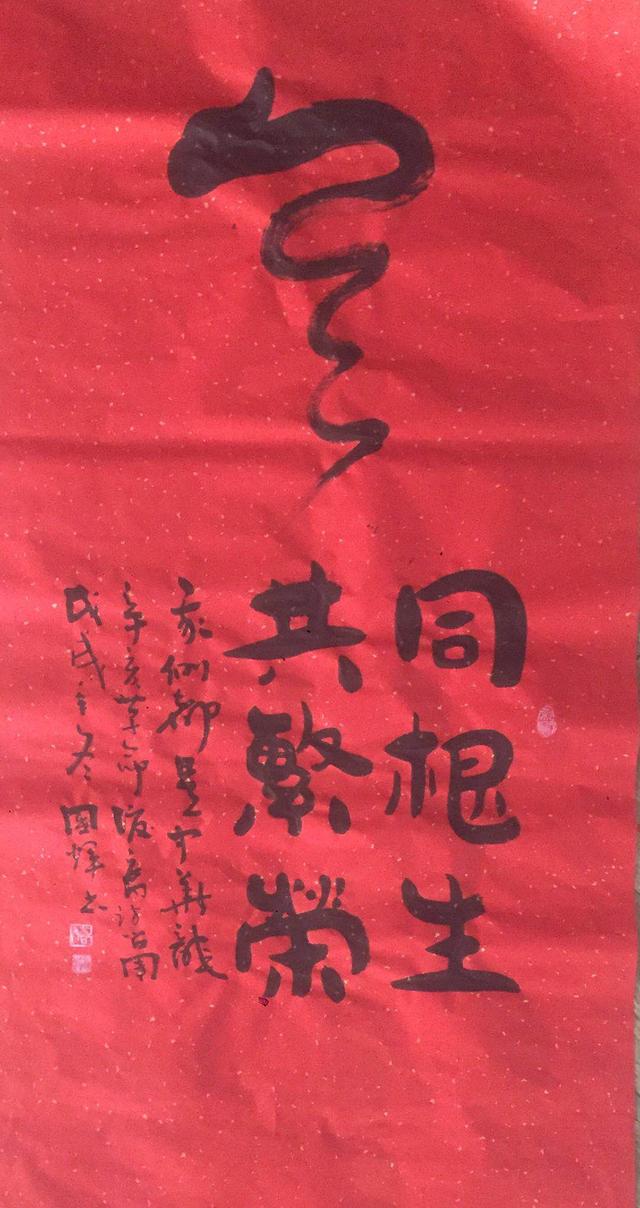 同根生
共繁榮
我们都是中華龍
辛亥革命後裔访台用
戊戌年冬國輝书